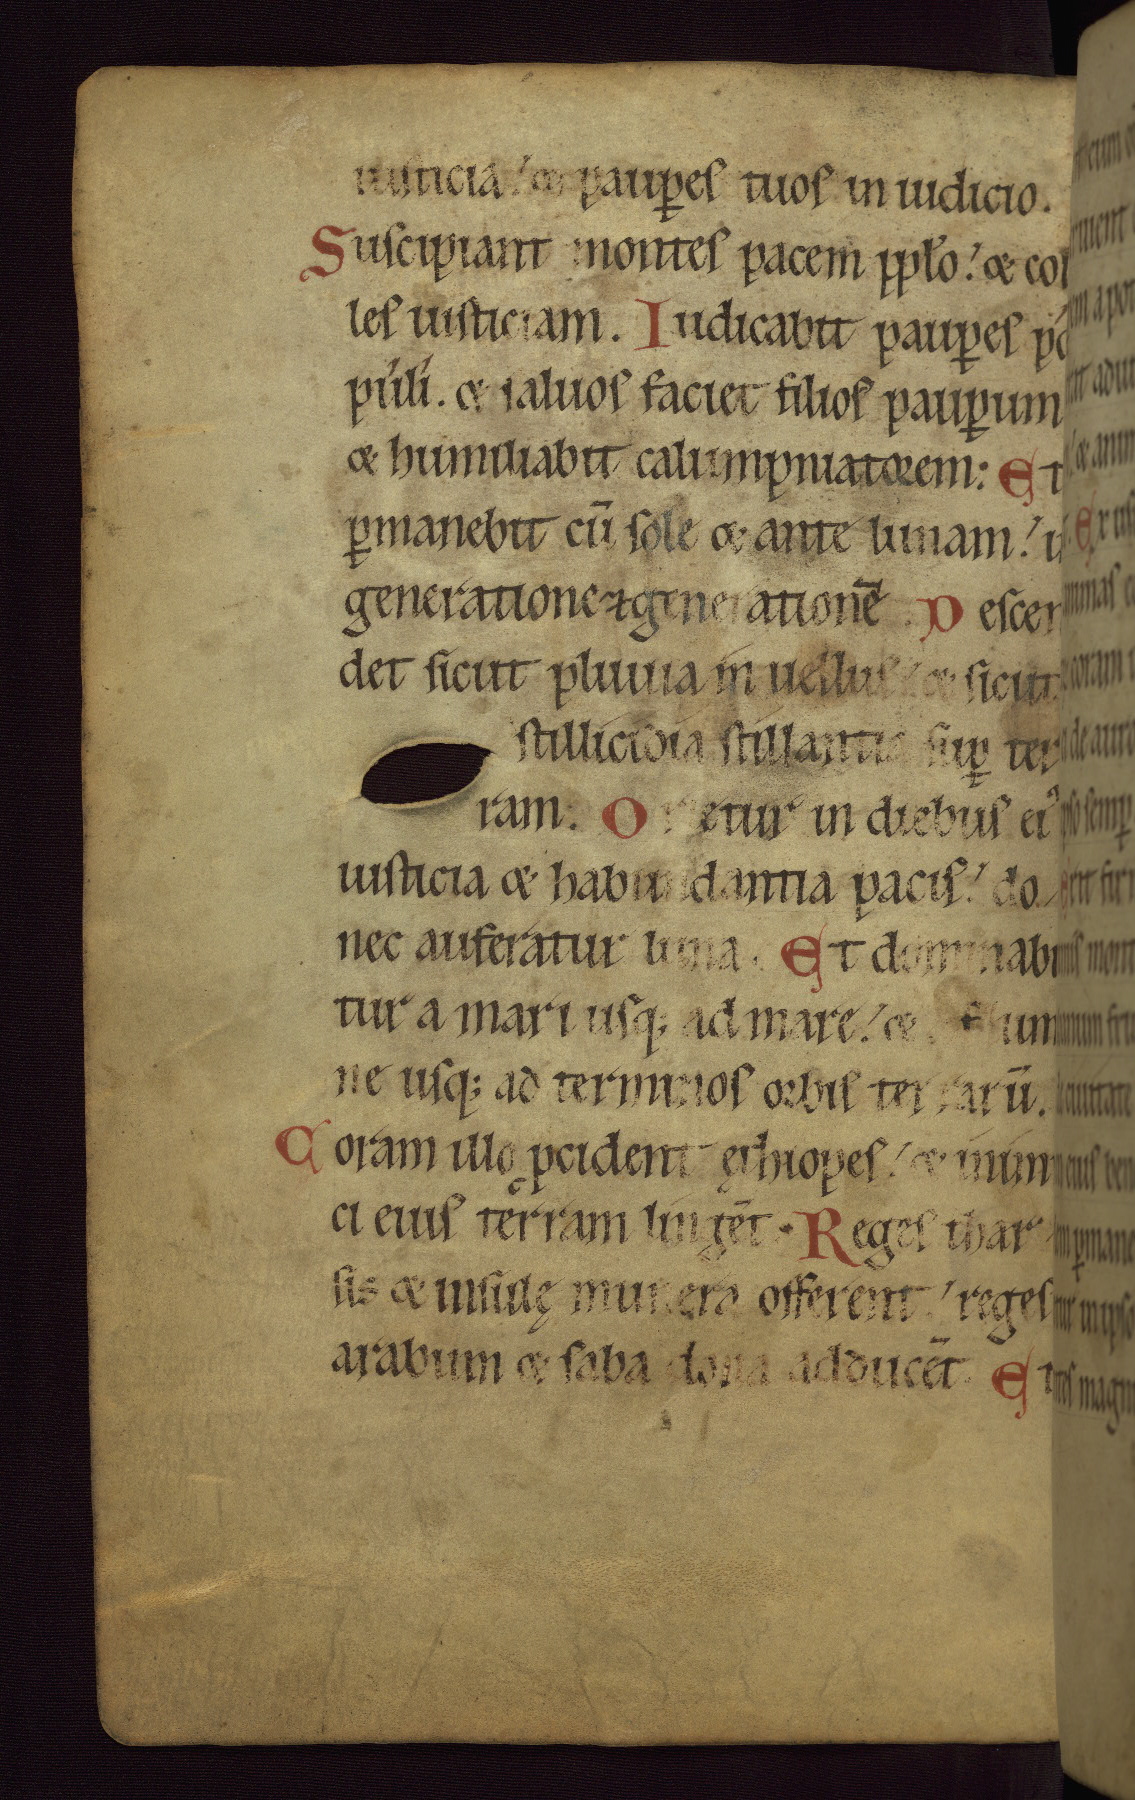 iusticia! & paup̱es tuos in iudicio.
Suscipiant montes pacem pp̱lo! & col
les iusticiam. Iudicabit paup̱es po
puli. & saluos faciet filios paup̱um
& humiliabit calumpniatorem: Et
p̱manebit cū sole & ante lunam!
generatione ⁊ generationē. Descen
det sicut pluuia in uellus! & sicut
stillicidia stillantia sup̱ ter
ram: Orietur in diebus ei᾽
iusticia & habundantia pacis! do
nec auferatur luna. Et dominabi
tur a mari usq; ad mare! & flum
ne usq; ad terminos orbis terrarū.
Coram illo pcident ęthiopes! & inimi
ci eius terram lingēt. Reges thar
sis & insulę munera offerent! reges
arabum & saba dona adducēt. Et